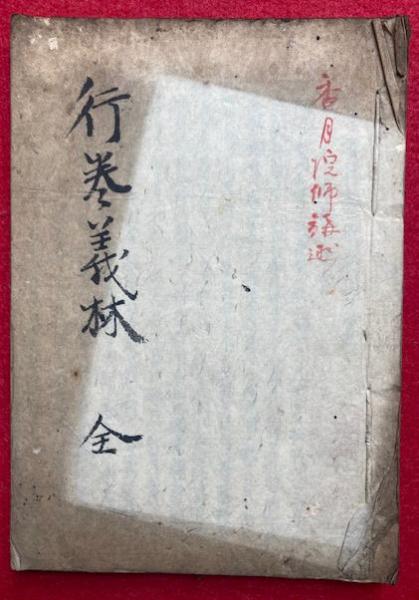 香月院師講述
行巻義林 全